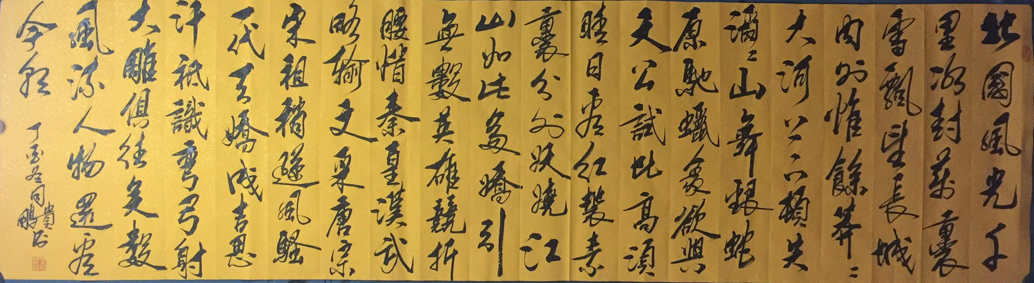 北國風光千
里冰封萬裏
雪飄望長城
內外惟餘莽〻
大河上下頓失
滔〻山舞銀蛇
原馳蠟象欲與
天公試比高須
晴日看紅裝素
裹分外妖嬈江
山如此多嬌引
無數英雄競折
腰惜秦皇漢武
略輸文采唐宗
宋祖稍遜風騷
一代天驕成吉思
汗祗識彎弓射
大雕俱往矣數
風流人物還看
今朝
丁酉冬